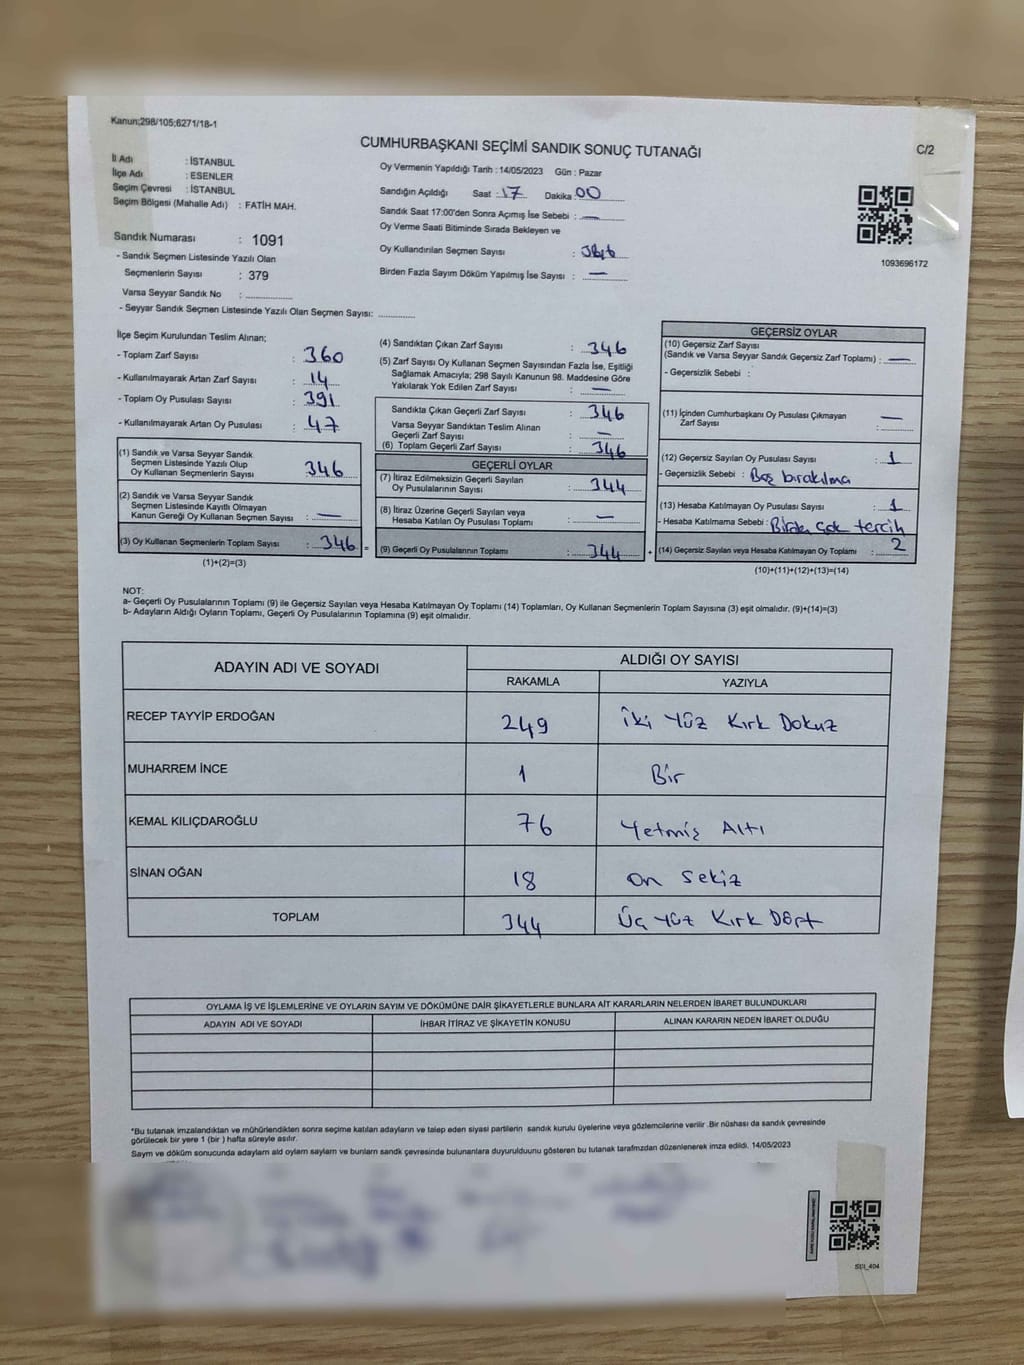 Kanun;298/105;6271/18-1
CUMHURBAŞKANI SEÇİMİ SANDIK SONUÇ TUTANAĞI
C/2
İl Adı : İSTANBUL
İlçe Adı : ESENLER
Seçim Çevresi : İSTANBUL
Seçim Bölgesi (Mahalle Adı) : FATİH MAH.
Sandık Numarası : 1091
- Sandık Seçmen Listesinde Yazılı Olan
Seçmenlerin Sayısı : 379
Varsa Seyyar Sandık No : ................
- Seyyar Sandık Seçmen Listesinde Yazılı Olan Seçmen Sayısı: ............
Oy Vermenin Yapıldığı Tarih : 14/05/2023 Gün : Pazar
Sandığın Açıldığı Saat : 17 Dakika : 00
Sandık Saat 17:00'den Sonra Açımış İse Sebebi : —
Oy Verme Saati Bitiminde Sırada Bekleyen ve
Oy Kullandırılan Seçmen Sayısı :
Birden Fazla Sayım Döküm Yapılmış İse Sayısı : —
1093696172
İlçe Seçim Kurulundan Teslim Alınan;
- Toplam Zarf Sayısı : 360
- Kullanılmayarak Artan Zarf Sayısı : 14
- Toplam Oy Pusulası Sayısı : 391
- Kullanılmayarak Artan Oy Pusulası : 47
(1) Sandık ve Varsa Seyyar Sandık
Seçmen Listesinde Yazılı Olup
Oy Kullanan Seçmenlerin Sayısı : 346
(2) Sandık ve Varsa Seyyar Sandık
Seçmen Listesinde Kayıtlı Olmayan
Kanun Gereği Oy Kullanan Seçmen Sayısı : —
(3) Oy Kullanan Seçmenlerin Toplam Sayısı : 346 =
(1)+(2)=(3)
(4) Sandıktan Çıkan Zarf Sayısı : 346
(5) Zarf Sayısı Oy Kullanan Seçmen Sayısından Fazla İse, Eşitliği
Sağlamak Amacıyla; 298 Sayılı Kanunun 98. Maddesine Göre
Yakılarak Yok Edilen Zarf Sayısı : —
Sandıkta Çıkan Geçerli Zarf Sayısı : 346
Varsa Seyyar Sandıktan Teslim Alınan
Geçerli Zarf Sayısı : —
(6) Toplam Geçerli Zarf Sayısı : 346
GEÇERLİ OYLAR
(7) İtiraz Edilmeksizin Geçerli Sayılan
Oy Pusulalarının Sayısı : 344
(8) İtiraz Üzerine Geçerli Sayılan veya
Hesaba Katılan Oy Pusulası Toplamı : —
(9) Geçerli Oy Pusulalarının Toplamı : 344 +
GEÇERSİZ OYLAR
(10) Geçersiz Zarf Sayısı
(Sandık ve Varsa Seyyar Sandık Geçersiz Zarf Toplamı) : —
- Geçersizlik Sebebi :
(11) İçinden Cumhurbaşkanı Oy Pusulası Çıkmayan
Zarf Sayısı : —
(12) Geçersiz Sayılan Oy Pusulası Sayısı : 1
- Geçersizlik Sebebi : Boş bırakılma
(13) Hesaba Katılmayan Oy Pusulası Sayısı : 1
- Hesaba Katılmama Sebebi : Birden çok tercih
(14) Geçersiz Sayılan veya Hesaba Katılmayan Oy Toplamı : 2
(10)+(11)+(12)+(13)=(14)
NOT:
a- Geçerli Oy Pusulalarının Toplamı (9) ile Geçersiz Sayılan veya Hesaba Katılmayan Oy Toplamı (14) Toplamları, Oy Kullanan Seçmenlerin Toplam Sayısına (3) eşit olmalıdır. (9)+(14)=(3)
b- Adayların Aldığı Oyların Toplamı, Geçerli Oy Pusulalarının Toplamına (9) eşit olmalıdır.
ADAYIN ADI VE SOYADI ALDIĞI OY SAYISI
RAKAMLA YAZIYLA
RECEP TAYYİP ERDOĞAN 249 İki Yüz Kırk Dokuz
MUHARREM İNCE 1 Bir
KEMAL KILIÇDAROĞLU 76 Yetmiş Altı
SİNAN OĞAN 18 On Sekiz
TOPLAM 344 Üç Yüz Kırk Dört
OYLAMA İŞ VE İŞLEMLERİNE VE OYLARIN SAYIM VE DÖKÜMÜNE DAİR ŞİKAYETLERLE BUNLARA AİT KARARLARIN NELERDEN İBARET BULUNDUKLARI
ADAYIN ADI VE SOYADI İHBAR İTİRAZ VE ŞİKAYETİN KONUSU ALINAN KARARIN NEDEN İBARET OLDUĞU
*Bu tutanak imzalandıktan ve mühürlendikten sonra seçime katılan adayların ve talep eden siyasi partilerin sandık kurulu üyelerine veya gözlemcilerine verilir .Bir nüshası da sandık çevresinde
görülecek bir yere 1 (bir ) hafta süreyle asılır.
Sayım ve döküm sonucunda adayların ald oyların sayların ve bunların sandk çevresinde bulunanlara duyurulduunu gösteren bu tutanak tarafmzdan düzenlenerek imza edildi. 14/05/2023
SEİ_404